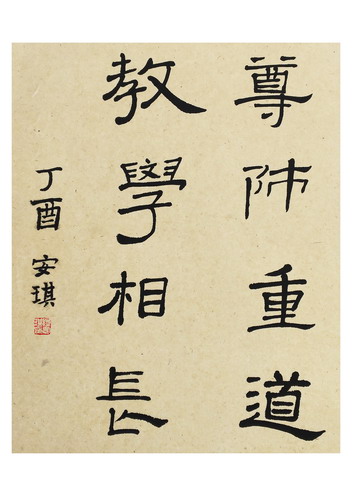 尊师重道
教學相長
丁酉 安琪